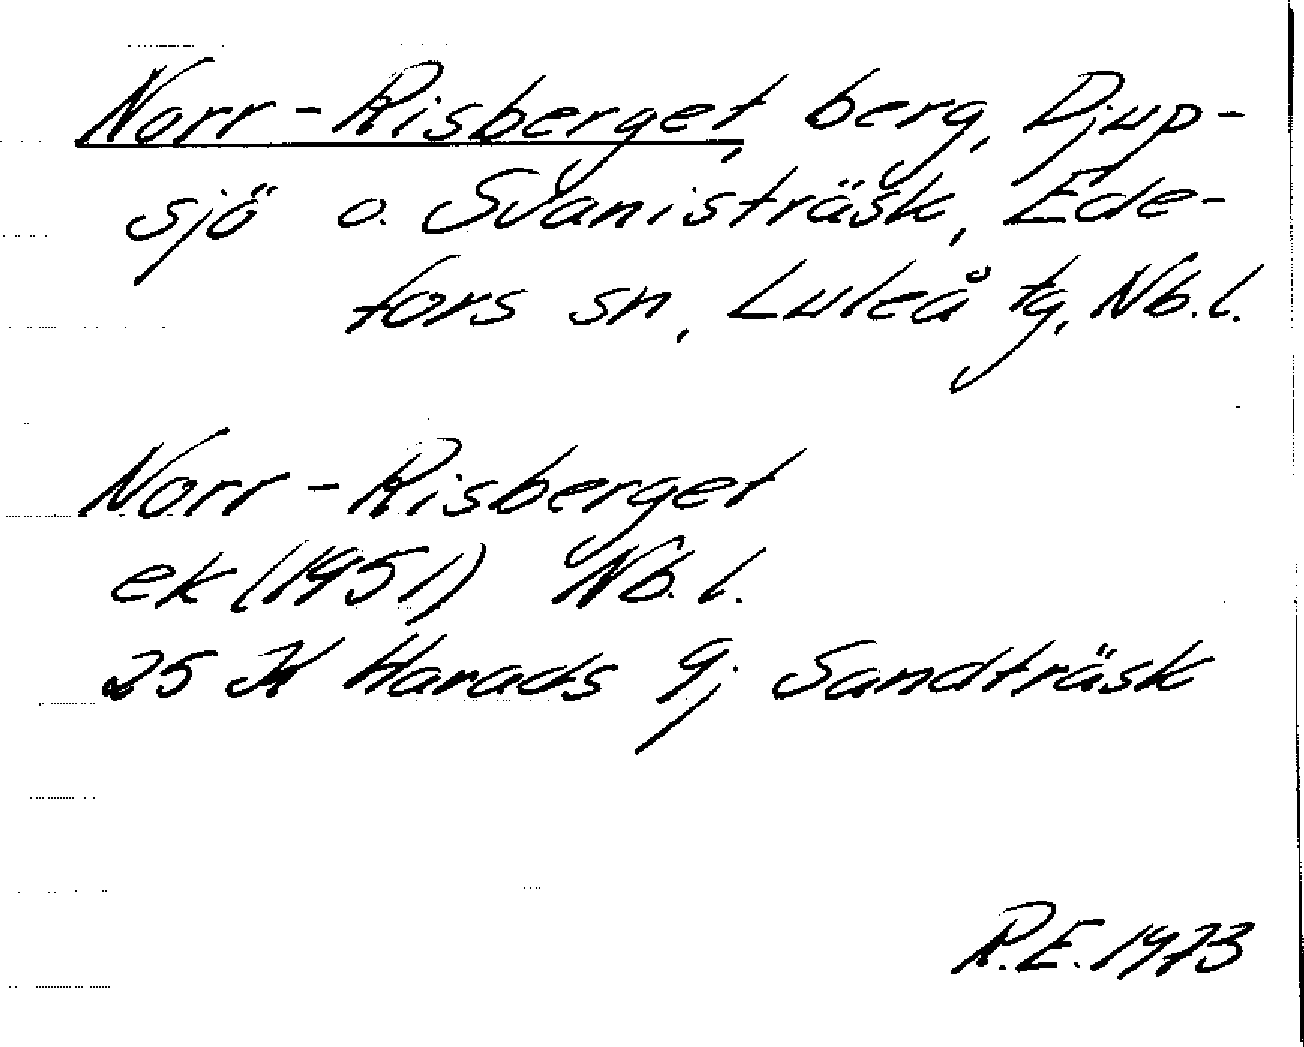 Norr-Risberget, berg, Djup-
sjö o. Svanisträsk, Ede-
fors sn, Luleå tg, Nb.l.
Norr-Risberget
ek(1951) Nb.l.
25 K Harads 9j Sandträsk
R.E.1973